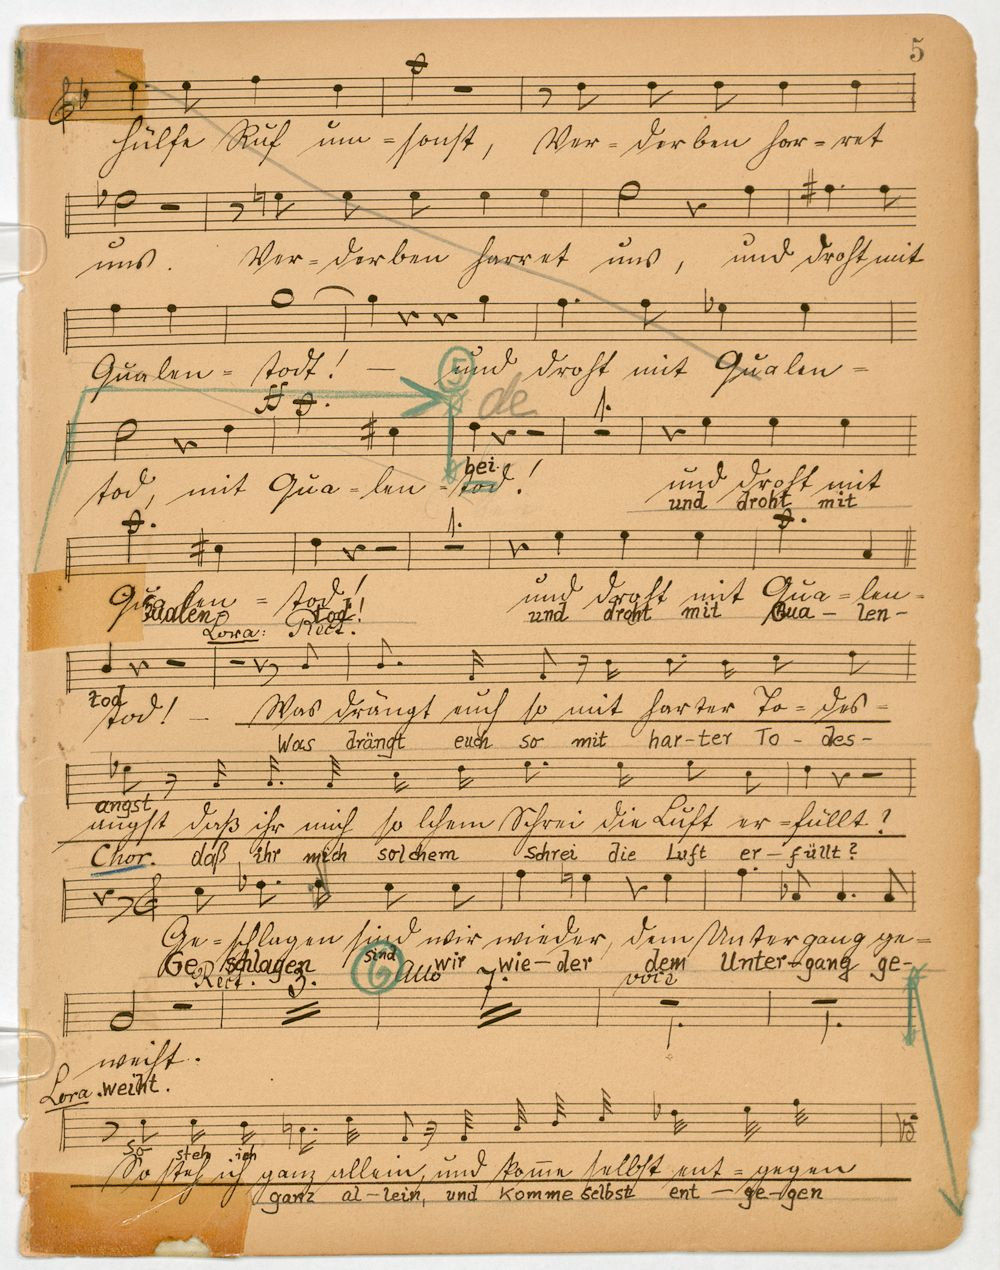 5
hülfe Ruf um-sonst, Ver-derben har-ret
uns. Ver-derben harret uns, und droht mit
Qualen-todt! — und droht mit Qualen-
5
ff de
1.
tod, mit Qua-len-tod! und droht mit
bei und droht mit
1.
Qualen-tod! und droht mit Qua-len-
Qualen- tod! und droht mit Qua-len-
Lora: Rect.
tod! — Was drängt euch so mit harter To-des-
tod
Was drängt euch so mit har-ter To-des-
angst
angst daß ihr mich so lchem Schrei die Luft er-füllt?
Chor. daß ihr mich solchem Schrei die Luft er-füllt?
Ge-schlagen sind wir wieder, dem Untergang ge-
Ge schlagen sind wir wie-der dem Unter-gang ge-
Rect. 3. 6 7.
1. 1.
weiht.
Lora. weiht.
So steh ich
So steh ich ganz allein, und kom̅e selbst ent-gegen
ganz al-lein, und komme selbst ent-ge-gen